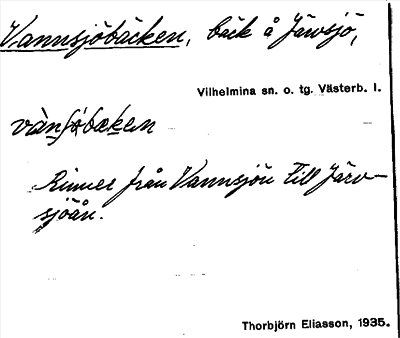 Vannsjöbäcken, bäck å Järvsjö,
Vilhelmina sn. o. tg. Västerb. l.
Rinner från Vannsjön till Järv-
sjöån.
Thorbjörn Eliasson, 1935.